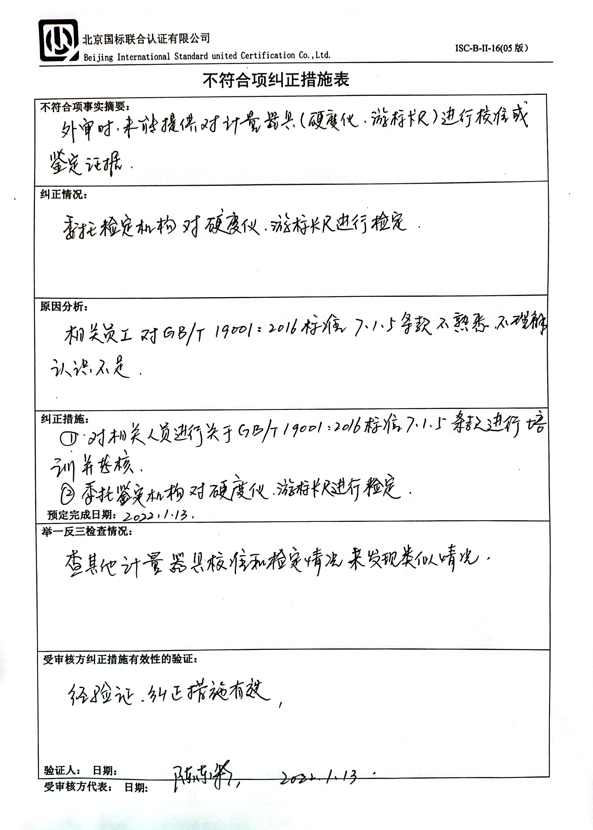 北京国标联合认证有限公司
Beijing International Standard united Certification Co.,Ltd.
ISC-B-II-16(05版)
不符合项纠正措施表
不符合项事实摘要:
外审时,未能提供对计量器具(硬度仪、游标卡尺)进行校准或
鉴定证据.
纠正情况:
委托检定机构对硬度仪、游标卡尺进行检定.
原因分析:
相关员工对GB/T 19001:2016标准7.1.5条款不熟悉,不理解
认识不足.
纠正措施:
①对相关人员进行关于GB/T19001:2016标准7.1.5条款进行培
训并考核.
②委托鉴定机构对硬度仪、游标卡尺进行检定.
预定完成日期: 2022.1.13.
举一反三检查情况:
查其他计量器具校准和检定情况未发现类似情况.
受审核方纠正措施有效性的验证:
经验证,纠正措施有效,
验证人: 日期:
陈东 2022.1.13.
受审核方代表: 日期: